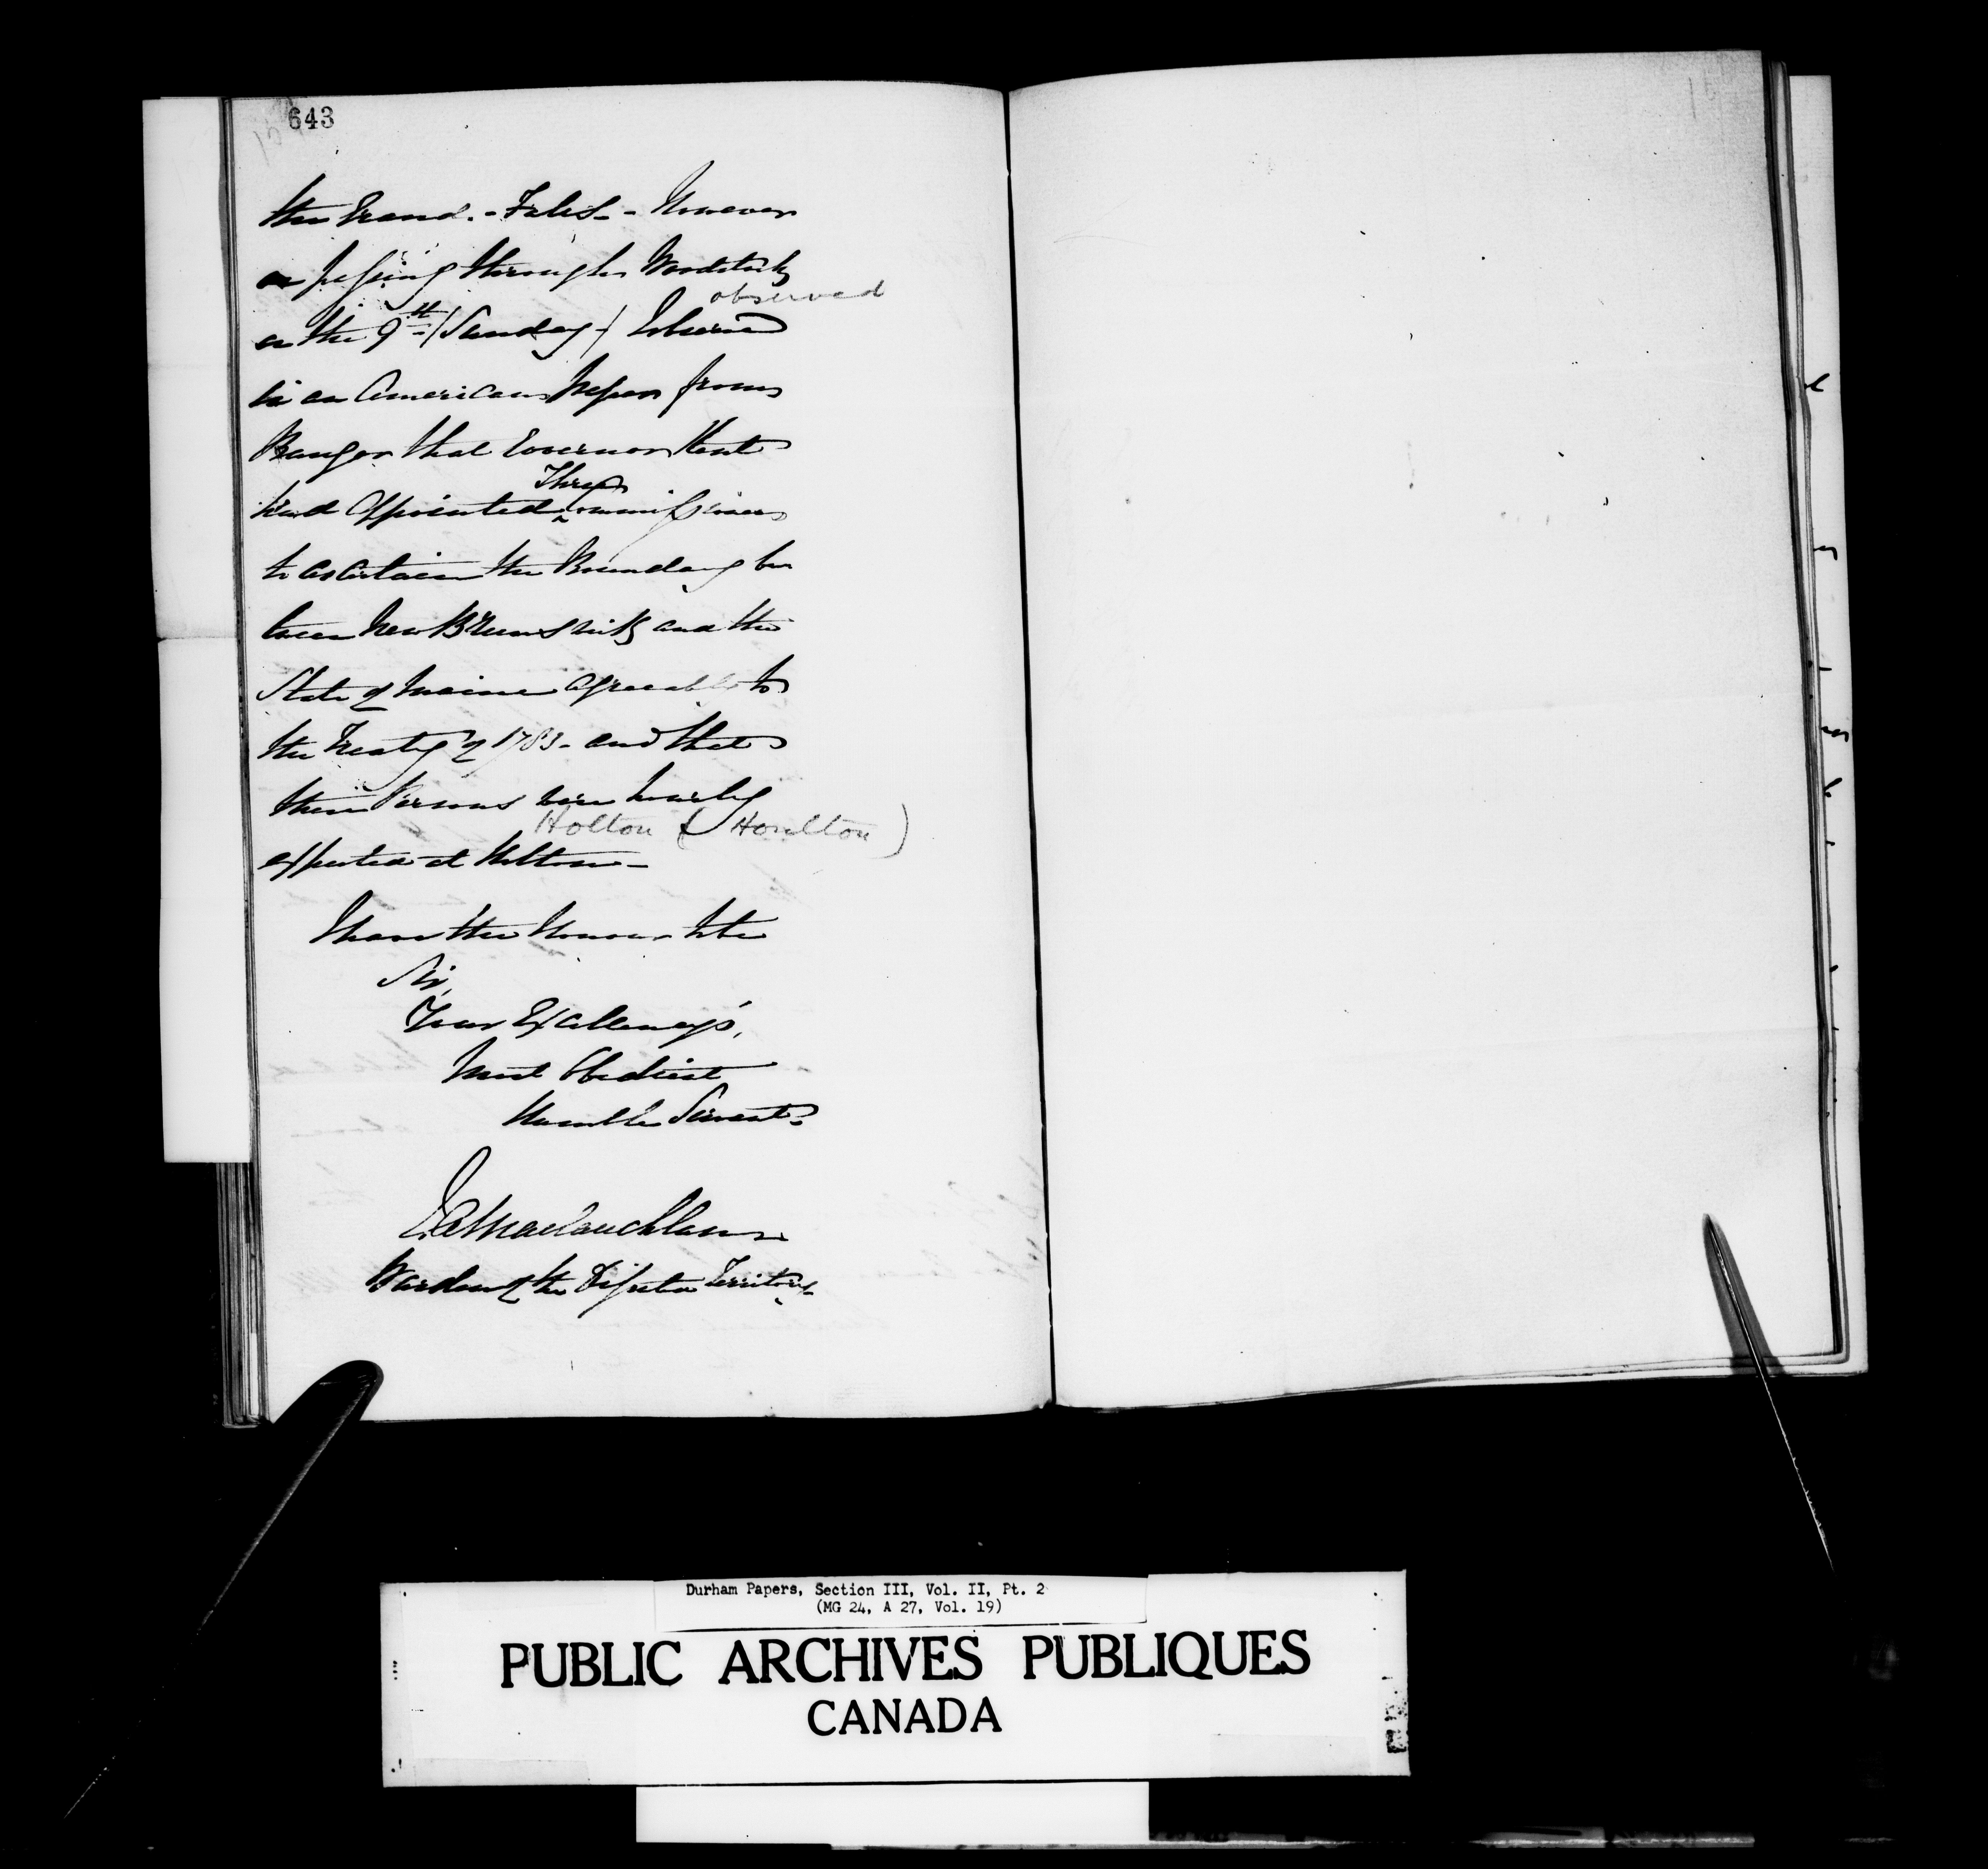 643
the Grand - Falls - However
on passing through Woodstock
observed
on the 9th (Sunday) I observed
in an American Paper from
Bangor that Governor Kent
Three
had appointed Commissioners
to ascertain the Boundary be
tween New Brunswick and the
State of Maine agreeable to
the Treaty of 1783 - and that
these Persons were hourly
Holton (Houlton)
expected at Holton -
I have the Honor to be
Sir,
Your Excellency's,
Most Obedient
Humble Servant
J. A. Maclauchlan
Warden of the Disputed Territory
Durham Papers, Section III, Vol. II, Pt. 2
(MG 24, A 27, Vol. 19)
PUBLIC ARCHIVES PUBLIQUES
CANADA